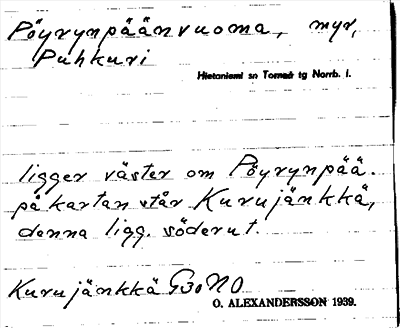 Pöyrynpäänvuoma, myr,
Puhkuri
Hietaniemi sn Torneå tg Norrb. l.
ligger väster om Pöyrynpää.
på kartan står Kurujänkkä,
denna ligg. söderut.
Kurujänkkä G30NO
O. ALEXANDERSSON 1939.